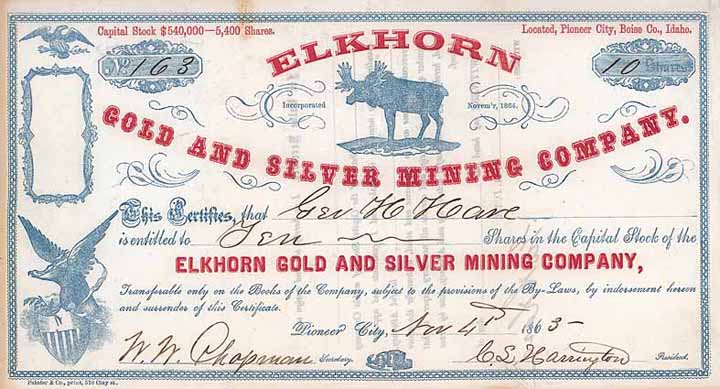 Capital Stock $540,000—5,400 Shares.
Located, Pioneer City, Boise Co., Idaho.
ELKHORN
No. 163
10 Shares
Incorporated Novem'r, 1864.
GOLD AND SILVER MINING COMPANY.
This Certifies, that Geo H Hare
is entitled to Ten Shares in the Capital Stock of the
ELKHORN GOLD AND SILVER MINING COMPANY,
Transferable only on the Books of the Company, subject to the provisions of the By-Laws, by indorsement hereon
and surrender of this Certificate.
Pioneer City, Nov 4th 1865
W. W. Chapman Secretary. C. L. Harrington President.
Painter & Co., print, 510 Clay st.